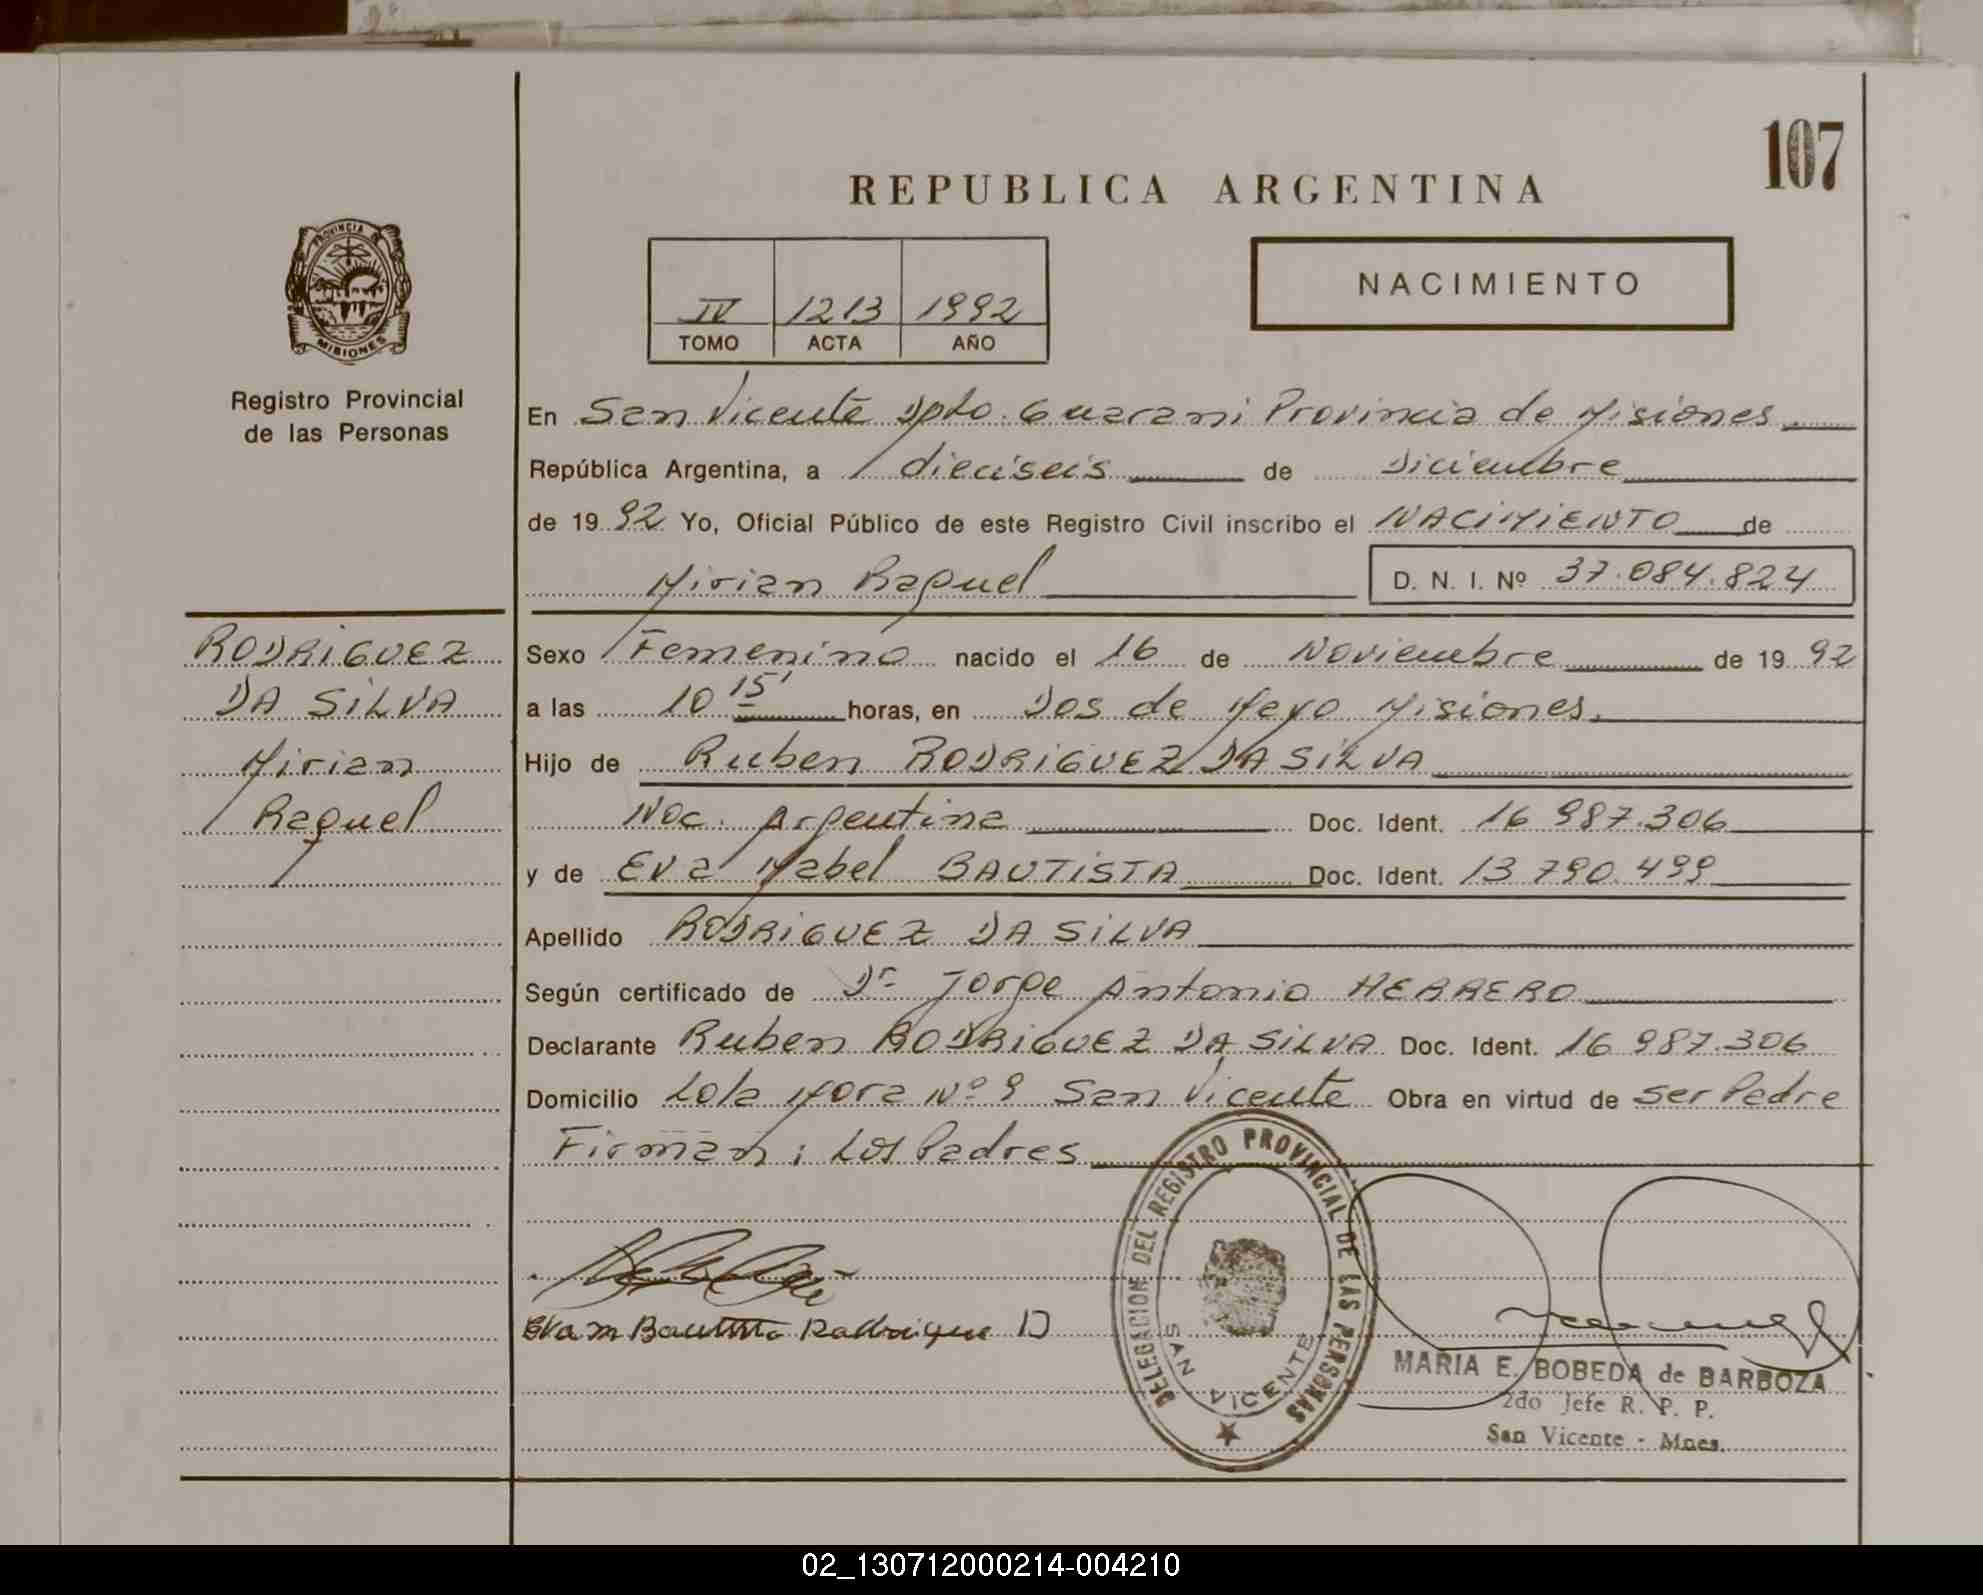 107
REPUBLICA ARGENTINA
PROVINCIA DE
MISIONES
Registro Provincial
de las Personas
IV 1213 1992
TOMO ACTA AÑO
NACIMIENTO
En San Vicente Dpto. Guarani Provincia de Misiones
República Argentina, a dieciseis de Diciembre
de 1992 Yo, Oficial Público de este Registro Civil inscribo el NACIMIENTO de
Mirian Raquel D. N. I. Nº 37.084.824
RODRIGUEZ
DA SILVA
Mirian
Raquel
Sexo Femenino nacido el 16 de Noviembre de 1992
a las 10 15' horas, en Dos de Mayo Misiones.
Hijo de Ruben RODRIGUEZ DA SILVA
Nac. Argentina Doc. Ident. 16 987.306
y de Eva Mabel BAUTISTA Doc. Ident. 13 790.499
Apellido RODRIGUEZ DA SILVA
Según certificado de Dr Jorge Antonio HERRERO
Declarante Ruben RODRIGUEZ DA SILVA Doc. Ident. 16 987.306
Domicilio Lola Mora Nº 9 San Vicente Obra en virtud de ser Padre
Firman: Los Padres
Eva M Bautista Rodrigue D
DELEGACION DEL REGISTRO PROVINCIAL DE LAS PERSONAS
SAN VICENTE
MARIA E. BOBEDA de BARBOZA
2do Jefe R. P. P.
San Vicente - Mnes.
02_130712000214-004210